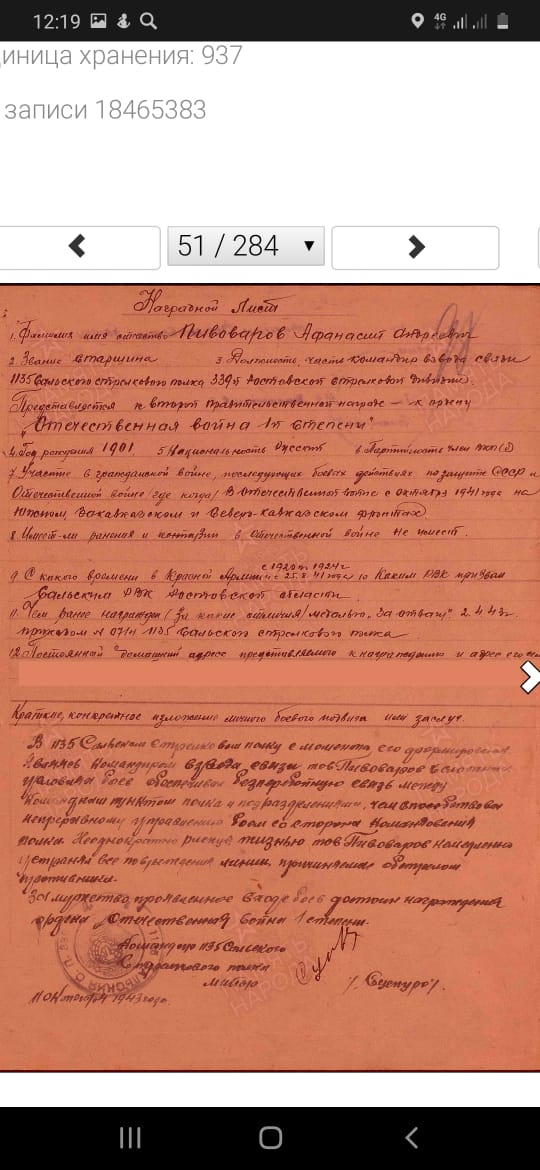 12:19
4G
диница хранения: 937
записи 18465383
51 / 284
Наградной Лист
1. Фамилия имя отчество Пивоваров Афанасий Андреевич
2 Звание Старшина 3. Должность, часть командир взвода связи
1135 Сальского стрелкового полка 339й Ростовской стрелковой дивизии.
Представляется к второй правительственной награде – к ордену
"Отечественная война 1й степени"
4. Год рождения 1901. 5 Национальность Русский 6. Партийность член ВКП(б)
7. Участие в гражданской войне, последующих боевых действиях по защите СССР и
Отечественной войне (где когда) В отечественной войне с октября 1941 года на
Южном, Закавказском и Северо-кавказском фронтах.
8. Имеет-ли ранения и контузии в Отечественной войне Не имеет.
с 1920 по 1924 г
9 С какого времени в Красной Армии с 25.8.41 года 10 Каким РВК призван
Сальским РВК Ростовской области.
11. Чем ранее награжден (За какие отличия) медалью "За отвагу" 2.4.43г.
приказом № 07/н 1135 Сальского стрелкового полка
12. Постоянный домашний адрес представляемого к награждению и адрес его
Краткое, конкретное изложение личного боевого подвига или заслуг.
В 1135 Сальском стрелковом полку с момента его формирования
Являясь командиром взвода связи тов Пивоваров в сложных
условиях боев обеспечивал бесперебойную связь между
Командным пунктом полка и подразделениями, чем способствовал
непрерывному управлению боем со стороны командования
полка. Неоднократно рискуя жизнью тов Пивоваров
устранял все повреждения линии, причиняемые обстрелом
противника.
За мужество, проявленное в ходе боев достоин награждения
ордена "Отечественная война 1 степени.
Командир 1135 Сальского
Стрелкового полка
майор
11 Октября 1943 года.
ПАМЯТЬ НАРОДА